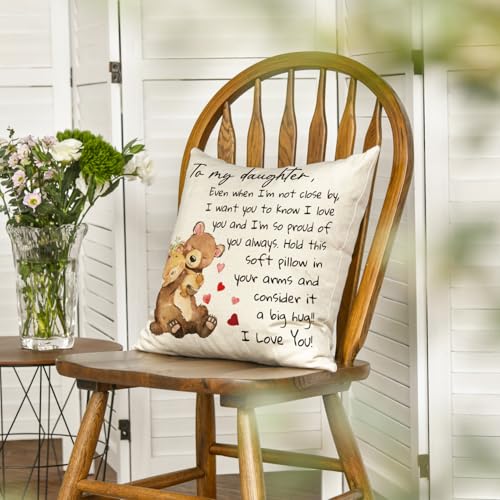 To my daughter,
Even when I'm not close by,
I want you to know I love
you and I'm so proud of
you always. Hold this
soft pillow in
your arms and
consider it
a big hug!!
I Love You!